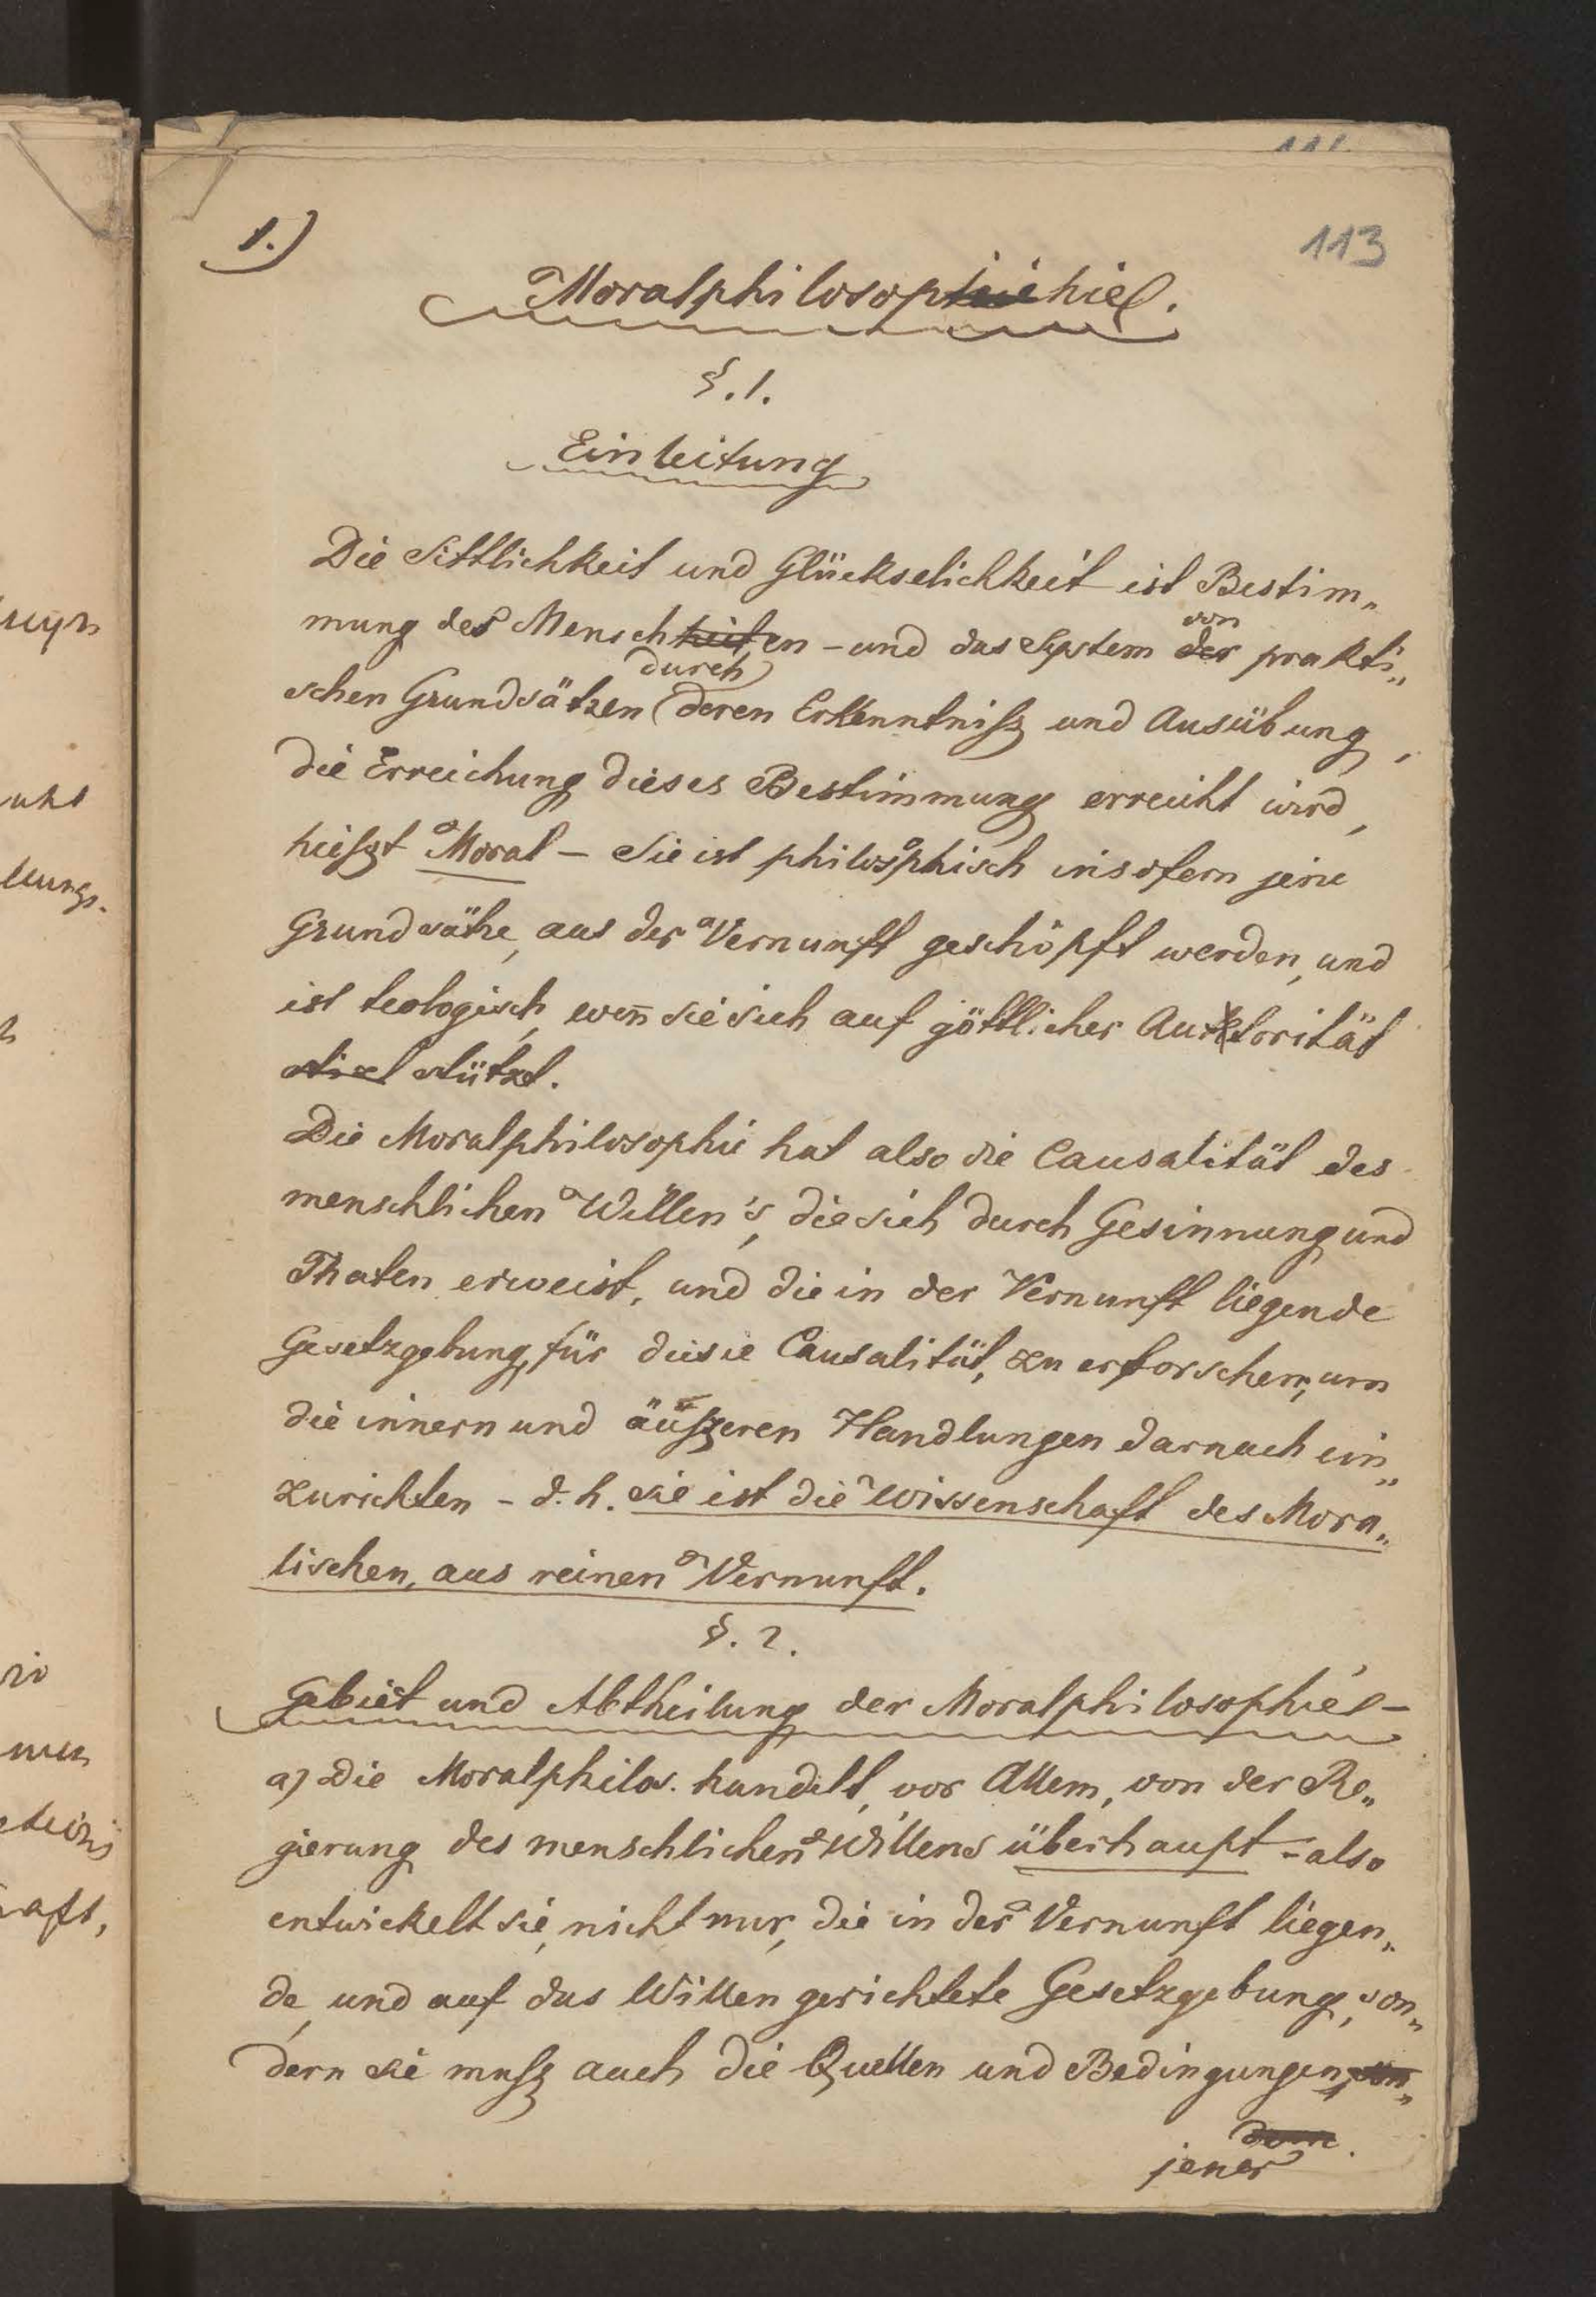 111.
113
1.)
Moralphilosophie.
§.1.
Einleitung
Die Sittlichkeit und Glückselichkeit ist Bestim„
mung des Menschheiten – und das System der von prakti„
schen Grundsätzen durch deren Erkenntnisz und Ausübung,
die Erreichung dieses Bestimmung erreicht wird,
heiszt Moral – Sie ist philosophisch insofern jene
Grundsätze, aus der Vernunft geschöpft werden, und
ist teologisch, weñ sie sich auf göttlicher Auctorität
stützt.
Die Moralphilosophie hat also die Causalität des
menschlichen Willen's, die sich durch Gesinnung und
Thaten erweist, und die in der Vernunft liegende
Gesetzgebung, für diesie Causalität, zu erforschen, um
die innern und äuszeren Handlungen darnach ein„
zurichten – d. h. sie ist die Wissenschaft des Mora„
lischen, aus reinen Vernunft.
§. 2.
Gebiet und Abtheilung der Moralphilosophie –
a) Die Moralphilos. handelt, vor Allem, von der Re„
gierung des menschlichen Willens überhaupt – also
entwickelt sie, nicht nur, die in der Vernunft liegen„
de, und auf das Willen gerichtete Gesetzgebung, son„
dern sie musz auch die Quellen und Bedingungen, son„
dern
jener